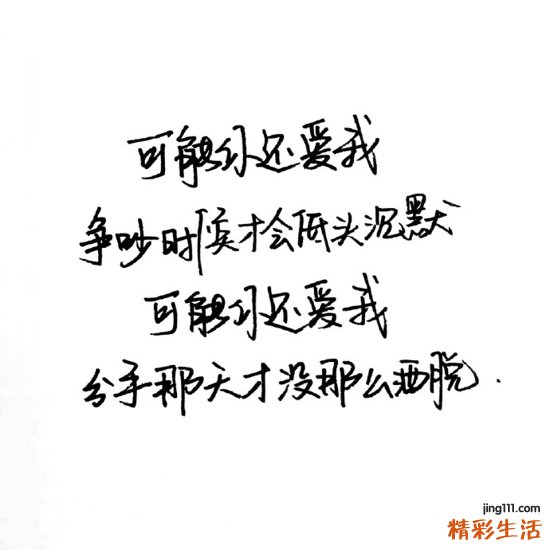 可能你还爱我
争吵时候才会低头沉默
可能你还爱我
分手那天才没那么洒脱.
jing111.com
精彩生活